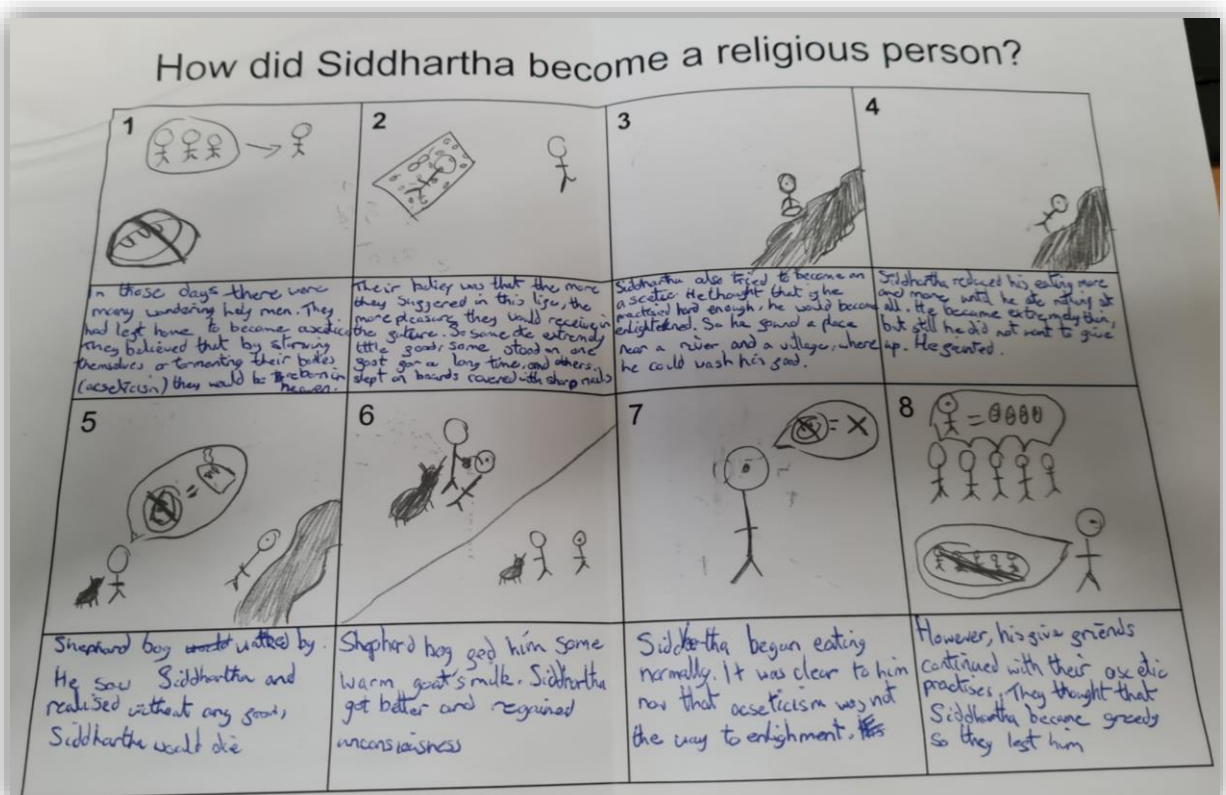 How did Siddhartha become a religious person?
1
In those days there were
many wandering holy men. They
had left home to become ascetics
They believed that by starving
themselves or tormenting their bodies
(aeseticisn) they would be reborn in
heaven.
2
Their belief was that the more
they suffered in this life, the
more pleasure they would receive in
the future. So some ate extremely
little food, some stood on one
foot for a long time, and others
slept on boards covered with sharp nails
3
Siddhartha also tried to become an
ascetic. He thought that if he
practised hard enough, he would become
enlightened. So he found a place
near a river and a village, where
he could wash his food.
4
Siddhartha reduced his eating more
and more until he ate nothing at
all. He became extremely thin,
but still he did not want to give
up. He fainted.
5
Shephard boy walked by.
He saw Siddhartha and
realised without any food,
Siddhartha would die
6
Shephard boy fed him some
warm goat's milk. Siddhartha
got better and regained
unconsiousness
7
Siddhartha began eating
normally. It was clear to him
now that aeseticism was not
the way to enlighment.
8
However, his five friends
continued with their ascetic
practises. They thought that
Siddhartha became greedy
so they left him